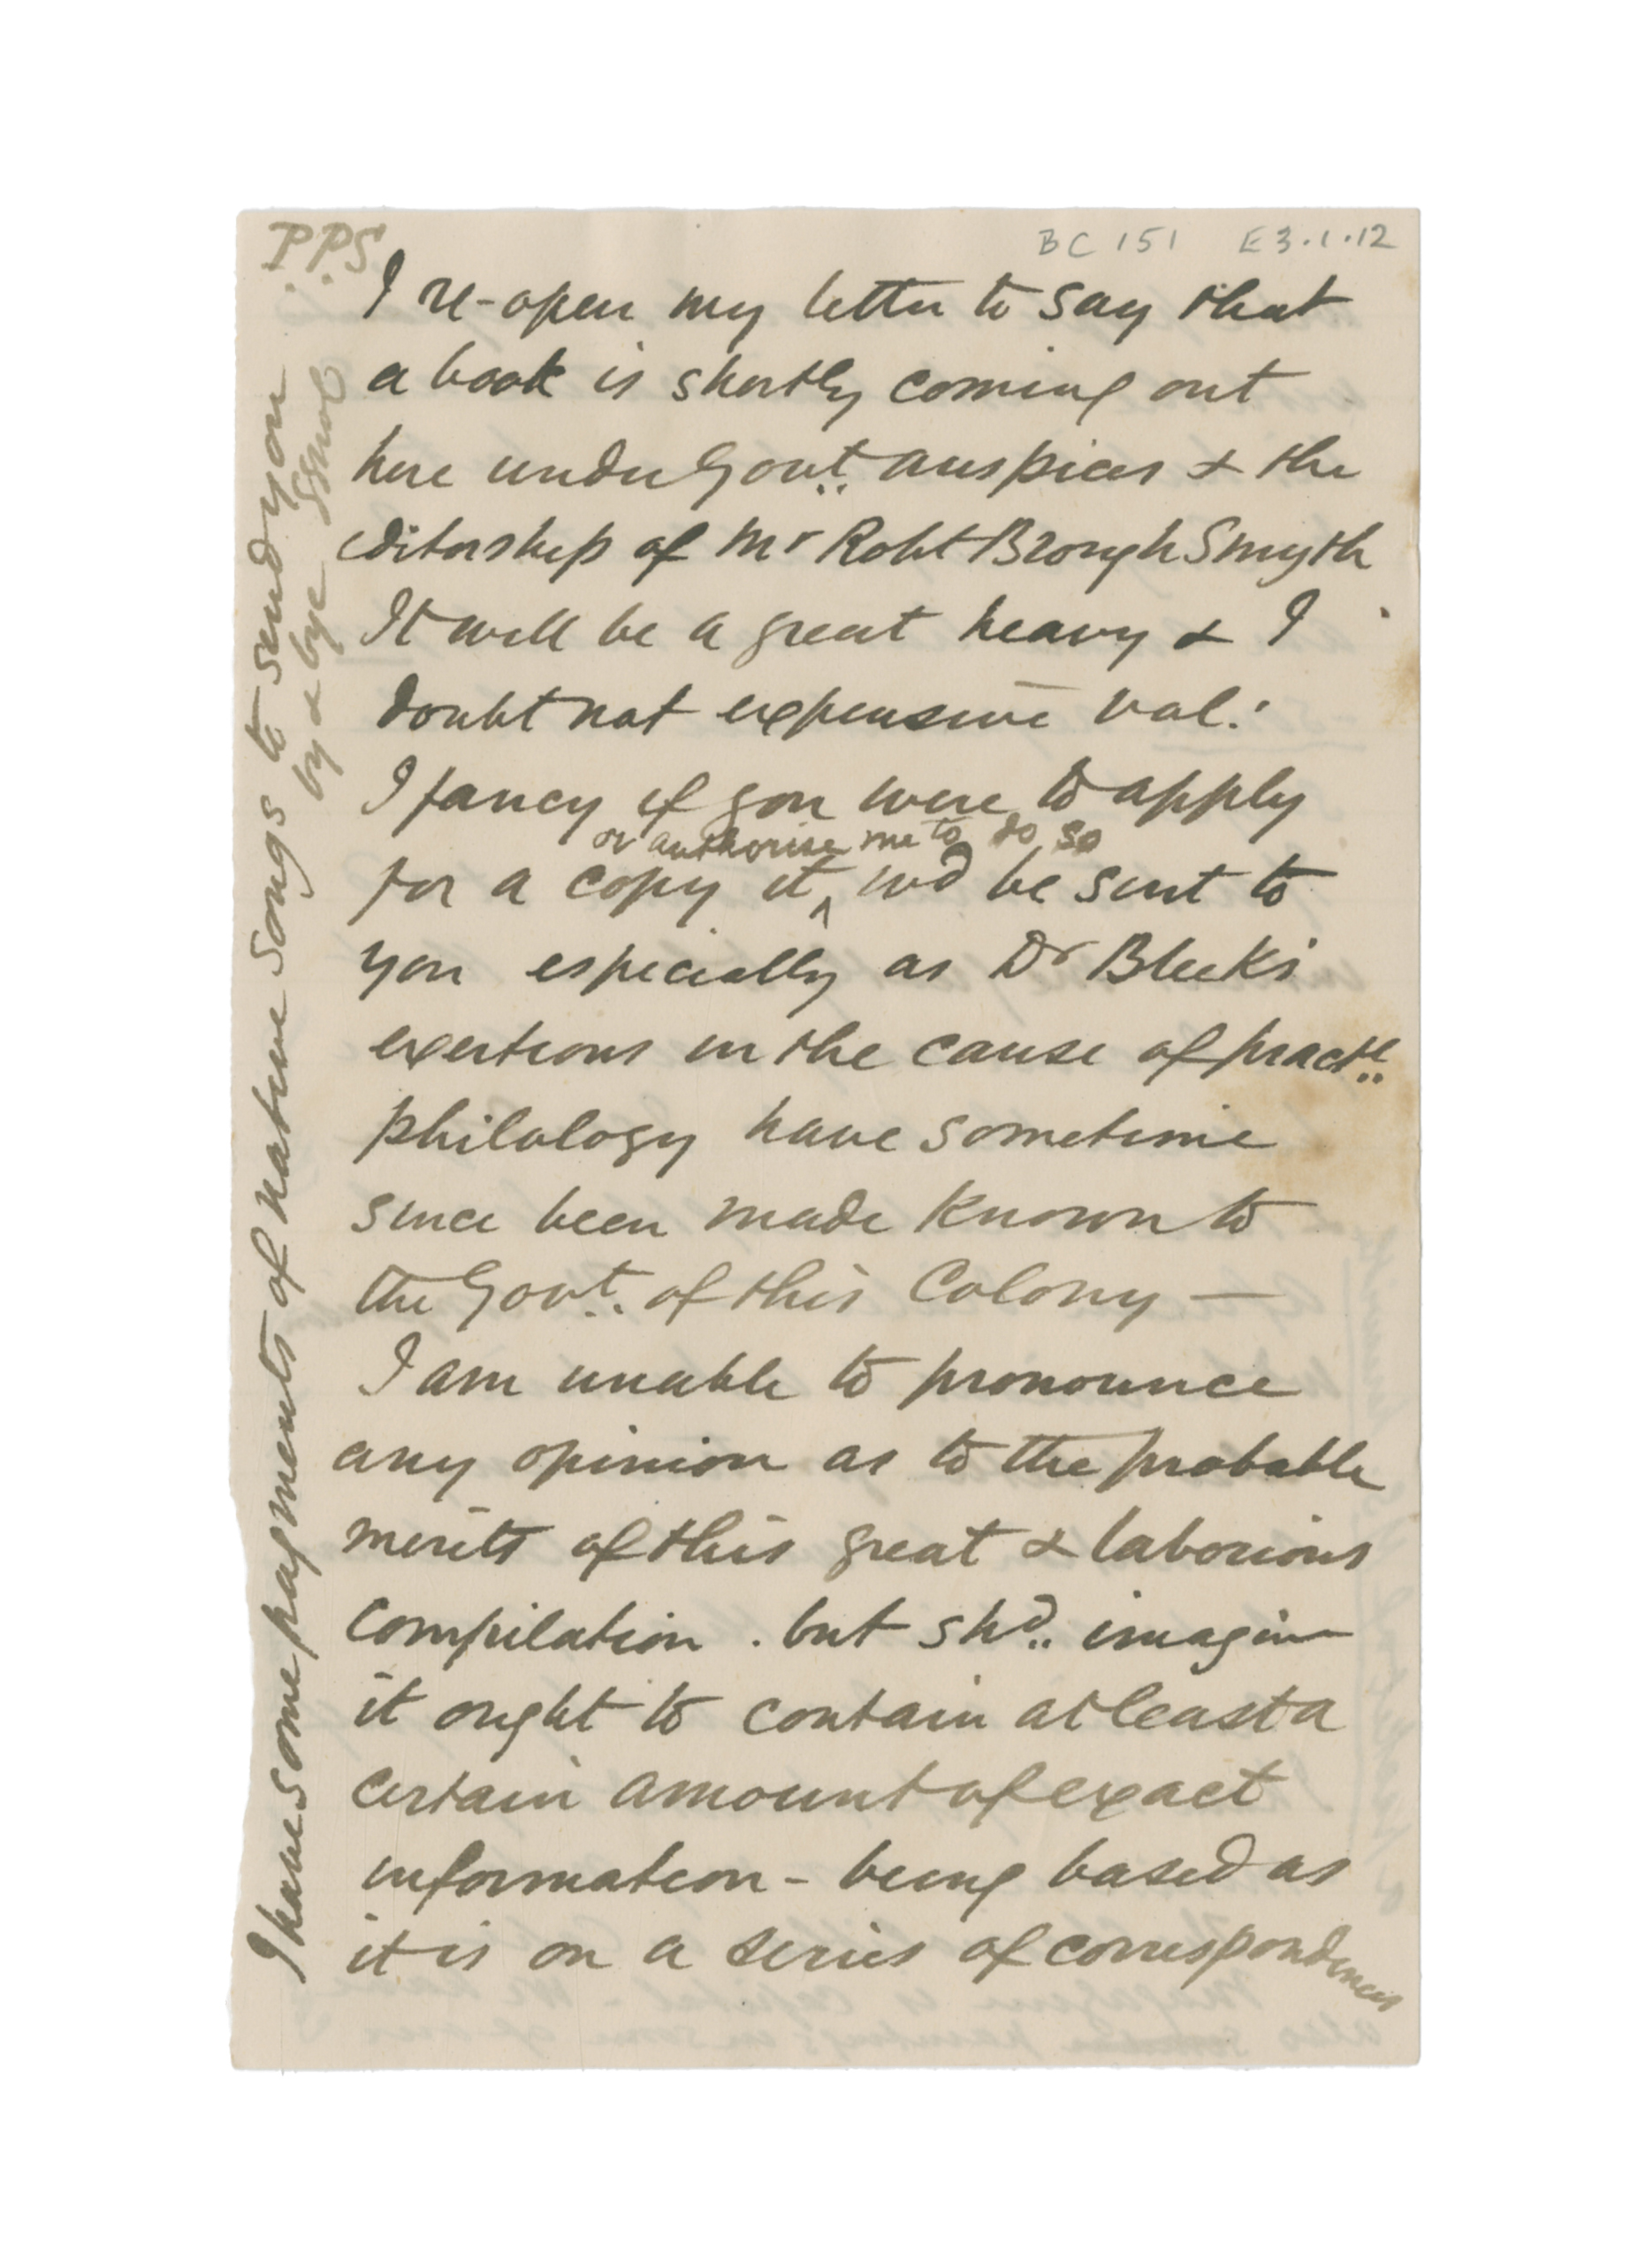 BC 151 E3.1.12
P.P.S
I re-open my letter to say that
a book is shortly coming out
here under Govt. auspices & the
editorship of Mr Robt Brough Smyth
It will be a great heavy & I
doubt not expensive vol:
I fancy if you were to apply
or authorise me to do so
for a copy it ^ wd be sent to
you especially as Dr Bleek's
exertions in the cause of practl..
philology have sometime
since been made known to
the Govt. of this Colony —
I am unable to pronounce
any opinion as to the probable
merits of this great & laborious
compilation . but shd.. imagine
it ought to contain at least a
certain amount of exact
information - being based as
it is on a series of correspondences
I have some fragments of native songs to send you
by & bye